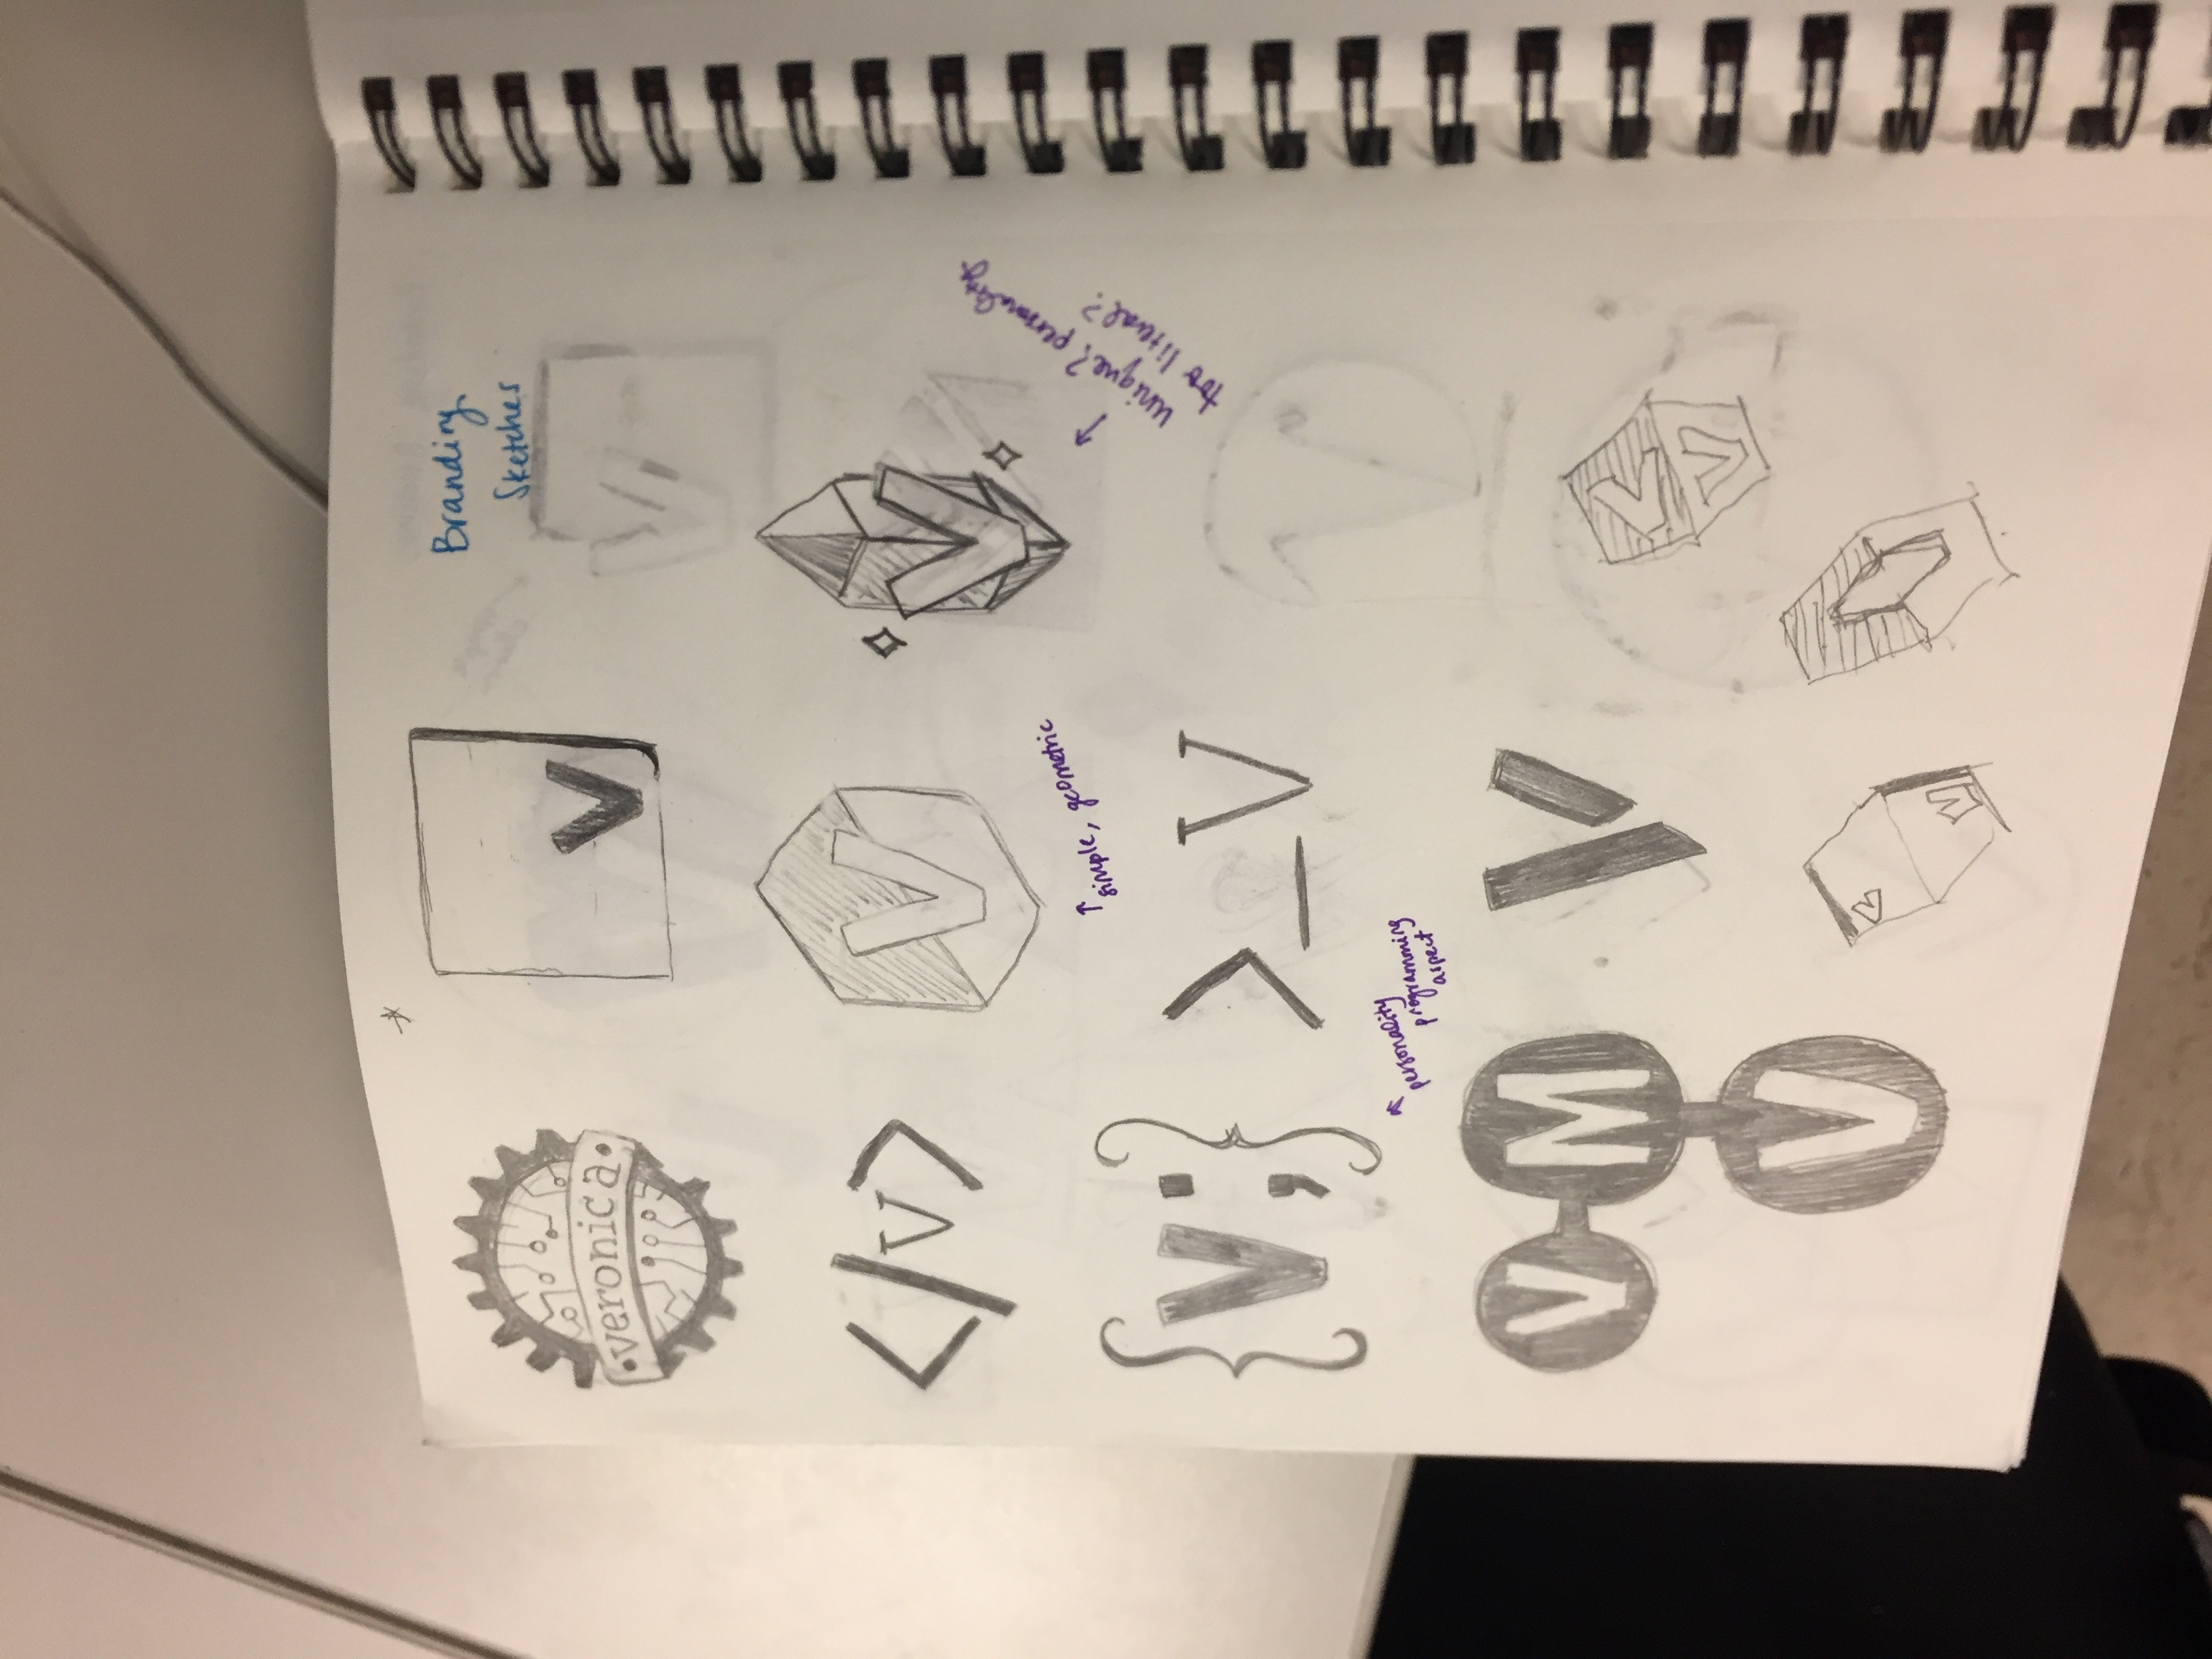 Branding
Sketches
veronica
V
</V>
V
V
↑ simple, geometric
↑ unique? personality
too literal?
{V;}
>_V
↑ personality
programming
aspect
V M
V
V
V
V
V
V